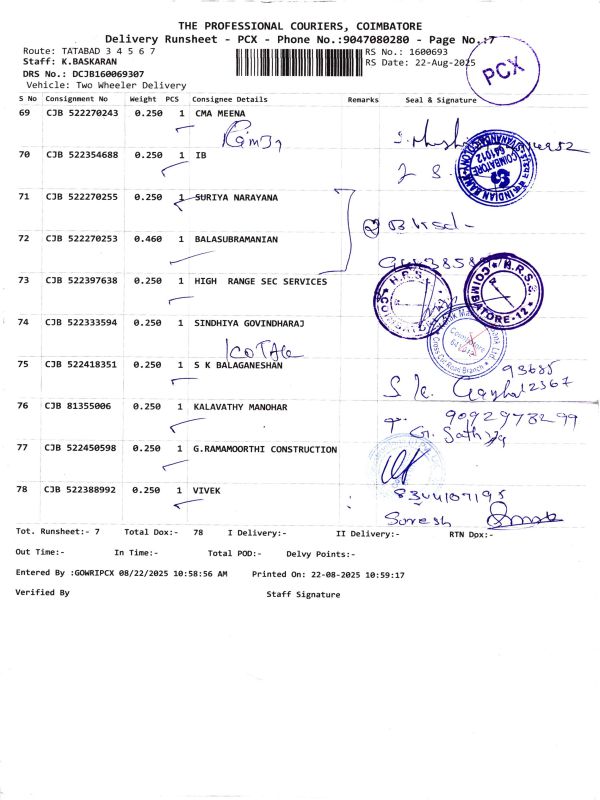 THE PROFESSIONAL COURIERS, COIMBATORE
Delivery Runsheet - PCX - Phone No.:9047080280 - Page No.:7
Route: TATABAD 3 4 5 6 7 RS No.: 1600693
Staff: K.BASKARAN RS Date: 22-Aug-2025
PCX
DRS No.: DCJB160069307
Vehicle: Two Wheeler Delivery
S No Consignment No Weight PCS Consignee Details Remarks Seal & Signature
69 CJB 522270243 0.250 1 CMA MEENA
70 CJB 522354688 0.250 1 IB
INDIAN BANK COIMBATORE 641012
71 CJB 522270255 0.250 1 SURIYA NARAYANA
72 CJB 522270253 0.460 1 BALASUBRAMANIAN
73 CJB 522397638 0.250 1 HIGH RANGE SEC SERVICES
H.R.S.S COIMBATORE-12
74 CJB 522333594 0.250 1 SINDHIYA GOVINDHARAJ
KOTAK
75 CJB 522418351 0.250 1 S K BALAGANESHAN
93685
12367
76 CJB 81355006 0.250 1 KALAVATHY MANOHAR
9092978299
G. Sathya
77 CJB 522450598 0.250 1 G.RAMAMOORTHI CONSTRUCTION
78 CJB 522388992 0.250 1 VIVEK
8344107195
Suresh
Tot. Runsheet:- 7 Total Dox:- 78 I Delivery:- II Delivery:- RTN Dpx:-
Out Time:- In Time:- Total POD:- Delvy Points:-
Entered By :GOWRIPCX 08/22/2025 10:58:56 AM Printed On: 22-08-2025 10:59:17
Verified By Staff Signature